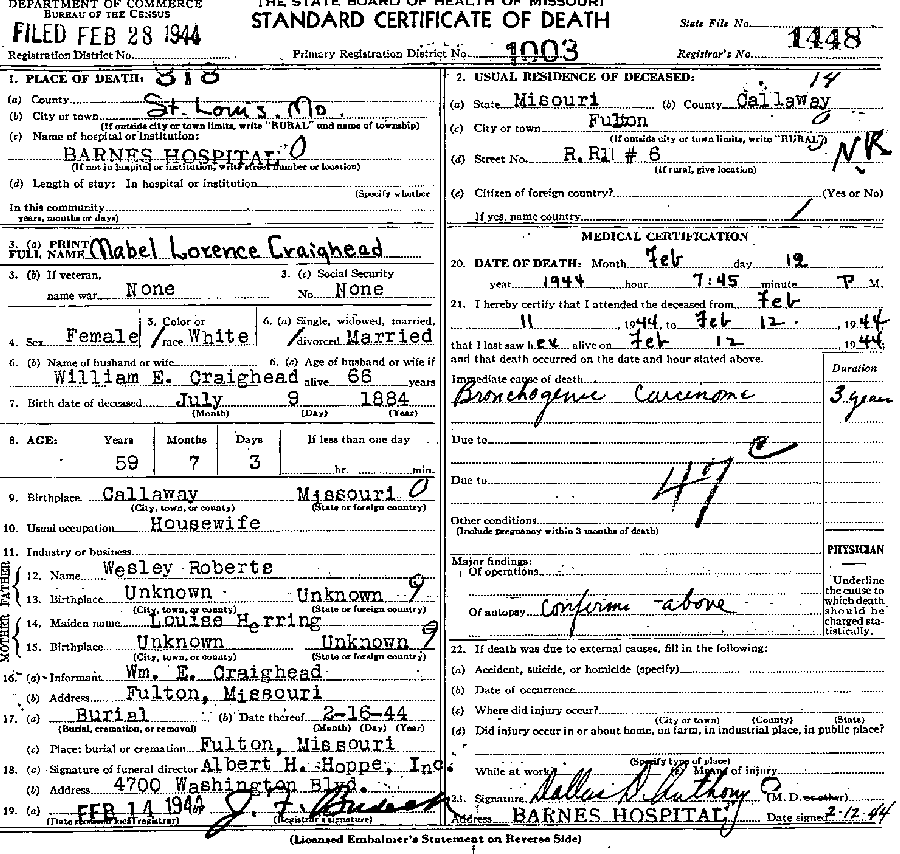 DEPARTMENT OF COMMERCE
BUREAU OF THE CENSUS
THE STATE BOARD OF HEALTH OF MISSOURI
STANDARD CERTIFICATE OF DEATH
State File No.
FILED FEB 28 1944
Registration District No. 318
Primary Registration District No. 1003
Registrar's No. 1448
1. PLACE OF DEATH:
(a) County
(b) City or town St. Louis, Mo.
(If outside city or town limits, write "RURAL" and name of township)
(c) Name of hospital or institution:
BARNES HOSPITAL 0
(If not in hospital or institution, write street number or location)
(d) Length of stay: In hospital or institution
(Specify whether
In this community
years, months or days)
2. USUAL RESIDENCE OF DECEASED: 14
(a) State Misouri (b) County Callaway
(c) City or town Fulton
(If outside city or town limits, write "RURAL")
(d) Street No. R.R1 # 6 NR
(If rural, give location)
(e) Citizen of foreign country? (Yes or No)
If yes, name country
3. (a) PRINT FULL NAME Mabel Lorence Craighead
3. (b) If veteran, name war None
3. (c) Social Security No. None
4. Sex Female
5. Color or race White
6. (a) Single, widowed, married, divorced Married
6. (b) Name of husband or wife William E. Craighead
6. (c) Age of husband or wife if alive 66 years
7. Birth date of deceased July 9 1884
(Month) (Day) (Year)
8. AGE: Years Months Days If less than one day
59 7 3 hr. min.
9. Birthplace Callaway Missouri 0
(City, town, or county) (State or foreign country)
10. Usual occupation Housewife
11. Industry or business
FATHER
12. Name Wesley Roberts
13. Birthplace Unknown Unknown 9
(City, town, or county) (State or foreign country)
MOTHER
14. Maiden name Louise Herring
15. Birthplace Unknown Unknown 9
(City, town, or county) (State or foreign country)
16. (a) Informant Wm. E. Craighead
(b) Address Fulton, Missouri
17. (a) Burial (b) Date thereof 2-16-44
(Burial, cremation, or removal) (Month) (Day) (Year)
(c) Place: burial or cremation Fulton, Missouri
18. (a) Signature of funeral director Albert H. Hoppe, Inc.
(b) Address 4700 Washington Blvd.
19. (a) FEB 14 1944 (b) J. F. Bredeck
(Date received local registrar) (Registrar's signature)
MEDICAL CERTIFICATION
20. DATE OF DEATH: Month Feb day 12
year 1944 hour 7:45 minute P M.
21. I hereby certify that I attended the deceased from Feb
11, 1944 to Feb 12, 1944
that I last saw her alive on Feb 12 1944
and that death occurred on the date and hour stated above.
Duration
Immediate cause of death
Bronchogenic Carcinoma 3 years
Due to
Due to 47 c
Other conditions
(Include pregnancy within 3 months of death)
PHYSICIAN
Underline the cause to which death should be charged statistically.
Major findings:
Of operations
Of autopsy Confirms above
22. If death was due to external causes, fill in the following:
(a) Accident, suicide, or homicide (specify)
(b) Date of occurrence
(c) Where did injury occur?
(City or town) (County) (State)
(d) Did injury occur in or about home, on farm, in industrial place, in public place?
(Specify type of place)
While at work? (e) Means of injury
23. Signature Dallas D. Anthony (M. D. or other)
Address BARNES HOSPITAL Date signed 2-12-44
(Licensed Embalmer's Statement on Reverse Side)